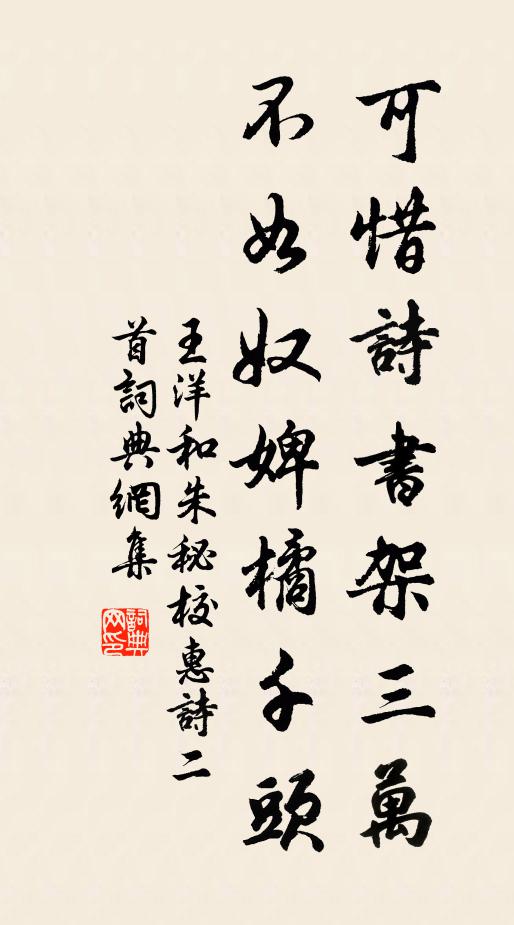 可惜詩書架三萬
不如奴婢橘千頭
王洋和朱秘校惠詩二
首詞典網集
詞典
网印